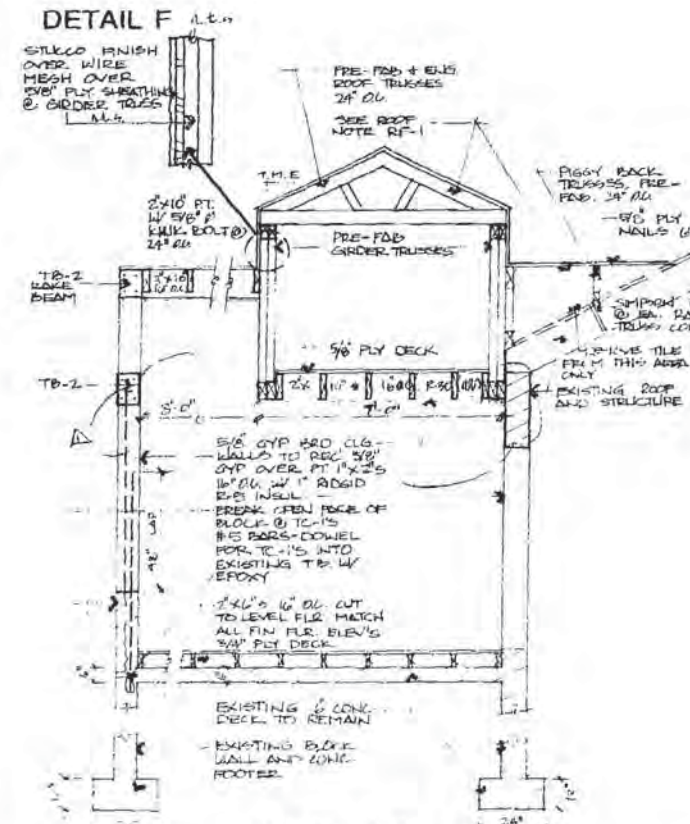 DETAIL F
N.t.s
STUCCO FINISH
OVER WIRE
MESH OVER
5/8" PLY SHEATHING
@ GIRDER TRUSS
PRE-FAB & ENG
ROOF TRUSSES
24" O.C.
SEE ROOF
NOTE RF-1
PIGGY BACK
TRUSSES, PRE-
FAB. 24" O.C.
5/8 PLY
NAILS
2"x10" PT.
W/ 5/8" Ø
KWIK BOLT @
24" O.C.
PRE-FAB
GIRDER TRUSSES
TB-2
RAKE
BEAM
5/8 PLY DECK
TILE
FROM THIS AREA
ONLY
EXISTING ROOF
AND STRUCTURE
TB-2
8'-0"
5/8" GYP BRD CLG
WALLS TO REC' 5/8"
GYP OVER PT 1"x2"S
16" O.C. W/ 1" RIDGID
INSUL
BREAK OPEN FACE OF
BLOCK @ TC-1'S
#5 BARS-DOWEL
FOR TC-1'S INTO
EXISTING TB W/
EPOXY
48" LAP
2"x6"S 16" O.C. CUT
TO LEVEL FLR. MATCH
ALL FIN FLR. ELEV'S
3/4" PLY DECK
EXISTING 6" CONC
DECK TO REMAIN
EXISTING BLOCK
WALL AND CONC
FOOTER